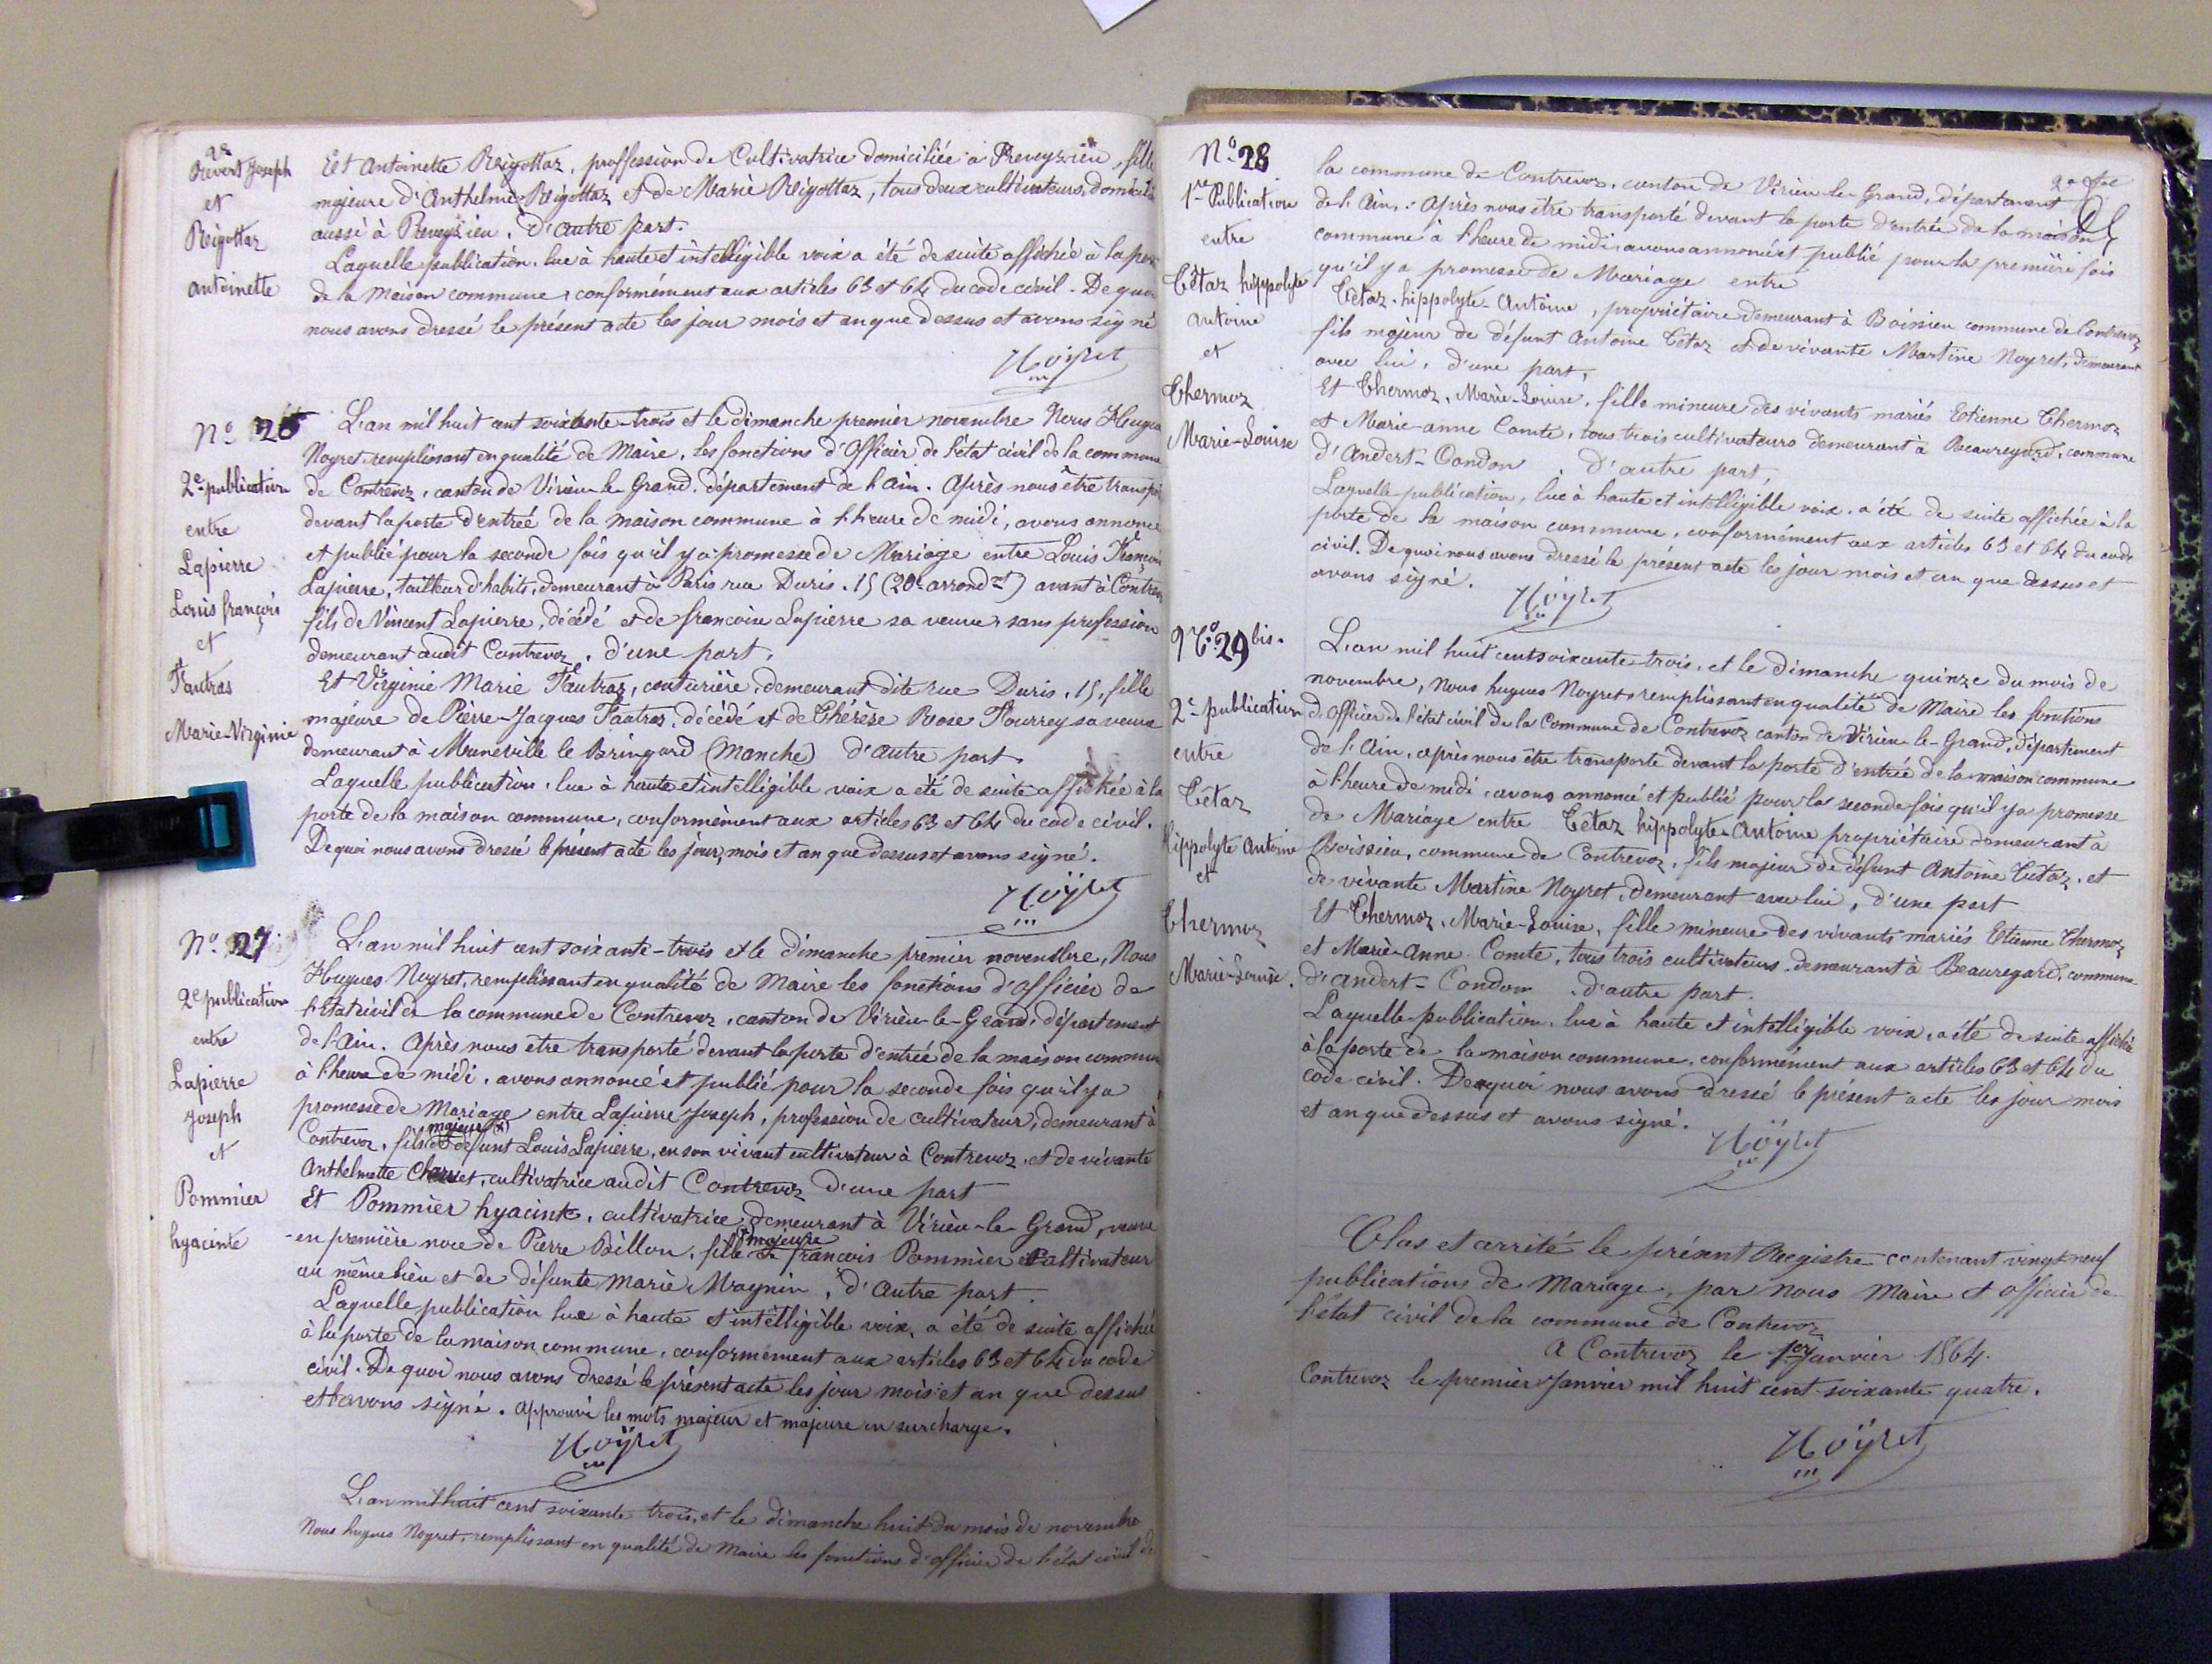 Revert Joseph
et
Reigottaz
antoinette
Et Antoinette Reigottaz, proffession de Cultivatrice domiciliée à Preveyzieu, fille
majeure d'Anthelme Reigottaz et de Marie Reigottaz, tous deux cultivateurs, domicilié
aussi à Preveyzieu, D'autre part.
Laquelle publication, lue à haute et intelligible voix a été de suite affichée à la porte
de la Maison commune, conformément aux articles 63 et 64 du code civil. De quoi
nous avons dressé le présent acte les jour mois et an que dessus et avons signé
Noÿret
No 26
2e publication
entre
Lapierre
Louis françois
et
Fautras
Marie-Virginie
L'an mil huit cent soixante-trois et le dimanche premier novembre Nous Hugues
Noyret remplissant en qualité de Maire, les fonctions d'Officier de l'état civil de la commune
de Contrevoz, canton de Virieu le Grand, département de l'ain. Après nous être transporté
devant la porte d'entrée de la Maison commune à l'heure de midi, avons annoncé
et publié pour la seconde fois qu'il y a promesse de Mariage entre Louis François
Lapierre, tailleur d'habits, demeurant à Paris rue Duris. 15 (20e arrondnt) avant à Contrevoz
fils de Vincent Lapierre, décédé et de françoise Lapierre sa veuve, sans profession
demeurant audit Contrevoz, d'une part,
Et Virginie Marie Fautraz, couturière, demeurant dite rue Duris, 15, fille
majeure de Pierre-Jacques Fautraz, décédé et de Thérèse Rose Fourrey sa veuve
demeurant à Muneville le Bringard (Manche) d'autre part.
Laquelle publication, lue à haute et intelligible voix a été de suite affichée à la
porte de la maison commune, conformément aux articles 63 et 64 du code civil.
De quoi nous avons dressé le présent acte les jour, mois et an que dessus et avons signé.
Noÿret
No 27
2e publication
entre
Lapierre
Joseph
et
Pommier
hyacinte
L'an mil huit cent soixante-trois et le dimanche premier novembre, Nous
Hugues Noyret, remplissant en qualité de Maire les fonctions d'officier de
l'état civil de la commune de Contrevoz, canton de Virieu-le-Grand, département
de l'ain. Après nous être transporté devant la porte d'entrée de la maison commune
à l'heure de midi, avons annoncé et publié pour la seconde fois qu'il y a
promesse de Mariage entre Lapierre Joseph, profession de cultivateur, demeurant à
majeur (x)
Contrevoz, fils de défunt Louis Lapierre, en son vivant cultivateur à Contrevoz, et de vivante
Anthelmette Charvet, cultivatrice audit Contrevoz d'une part
Et Pommier hyacinte, cultivatrice, demeurant à Virieu-le-Grand, veuve
majeure
en première noce de Pierre Billon, fille de francois Pommier cultivateur
au même lieu et de défunte Marie Magnin, d'autre part.
Laquelle publication lue à haute et intelligible voix, a été de suite affichée
à la porte de la maison commune, conformément aux articles 63 et 64 du code
civil. De quoi nous avons dressé le présent acte les jour mois et an que dessus
et avons signé. approuvé les mots majeur et majeure en surcharge.
Noÿret
L'an mil huit cent soixante trois, et le dimanche huit du mois de novembre
Nous hugues Noyret, remplissant en qualité de Maire les fonctions d'officier de l'état civil de
No 28
1re Publication
entre
Tétaz hippolyte
antoine
et
Thermoz
Marie-Louise
la commune de Contrevoz, canton de Virieu-le-Grand, département
de l'Ain. Après nous être transporté devant la porte d'entrée de la maison
commune à l'heure de midi avons annoncé et publié pour la première fois
qu'il y a promesse de Mariage entre
Tétaz-hippolyte-Antoine, propriétaire demeurant à Boissieu commune de Contrevoz,
fils majeur de défunt Antoine Tétaz et de vivante Martine Noyret, demeurant
avec lui, d'une part,
Et Thermoz, Marie-Louise, fille mineure des vivants mariés Etienne Thermoz
et Marie-anne Comte, tous trois cultivateurs demeurant à Beauregard, commune
d'Andert-Condon, d'autre part,
Laquelle publication, lue à haute et intelligible voix, a été de suite affichée à la
porte de la maison commune, conformément aux articles 63 et 64 du code
civil. De quoi nous avons dressé le présent acte les jour mois et an que dessus et
avons signé.
Noÿret
No 29 bis.
2e publication
entre
Tétaz
hippolyte Antoine
et
Thermoz
Marie-Louise.
L'an mil huit cent soixante trois, et le dimanche quinze du mois de
novembre, Nous hugues Noyret remplissant en qualité de Maire les fonctions
d'officier de l'état civil de la Commune de Contrevoz canton de Virieu-le-Grand, département
de l'Ain, après nous être transporté devant la porte d'entrée de la maison commune
à l'heure de midi, avons annoncé et publié pour la seconde fois qu'il y a promesse
de Mariage entre Tétaz hippolyte-Antoine propriétaire demeurant à
Boissieu, commune de Contrevoz, fils majeur de défunt Antoine Tétaz, et
de vivante Martine Noyret, demeurant avec lui, d'une part
Et Thermoz, Marie-Louise, fille mineure des vivants mariés Etienne Thermoz
et Marie-Anne Comte, tous trois cultivateurs demeurant à Beauregard, commune
d'andert-Condon, d'autre part.
Laquelle publication, lue à haute et intelligible voix, a été de suite affichée
à la porte de la maison commune, conformément aux articles 63 et 64 du
code civil. De quoi nous avons dressé le présent acte les jour mois
et an que dessus et avons signé.
Noÿret
Clos et arrêté le présent Registre contenant vingt-neuf
publications de Mariage, par nous Maire et officier de
l'état civil de la commune de Contrevoz
A Contrevoz le 1er Janvier 1864.
Contrevoz le premier Janvier mil huit cent soixante quatre.
Noÿret